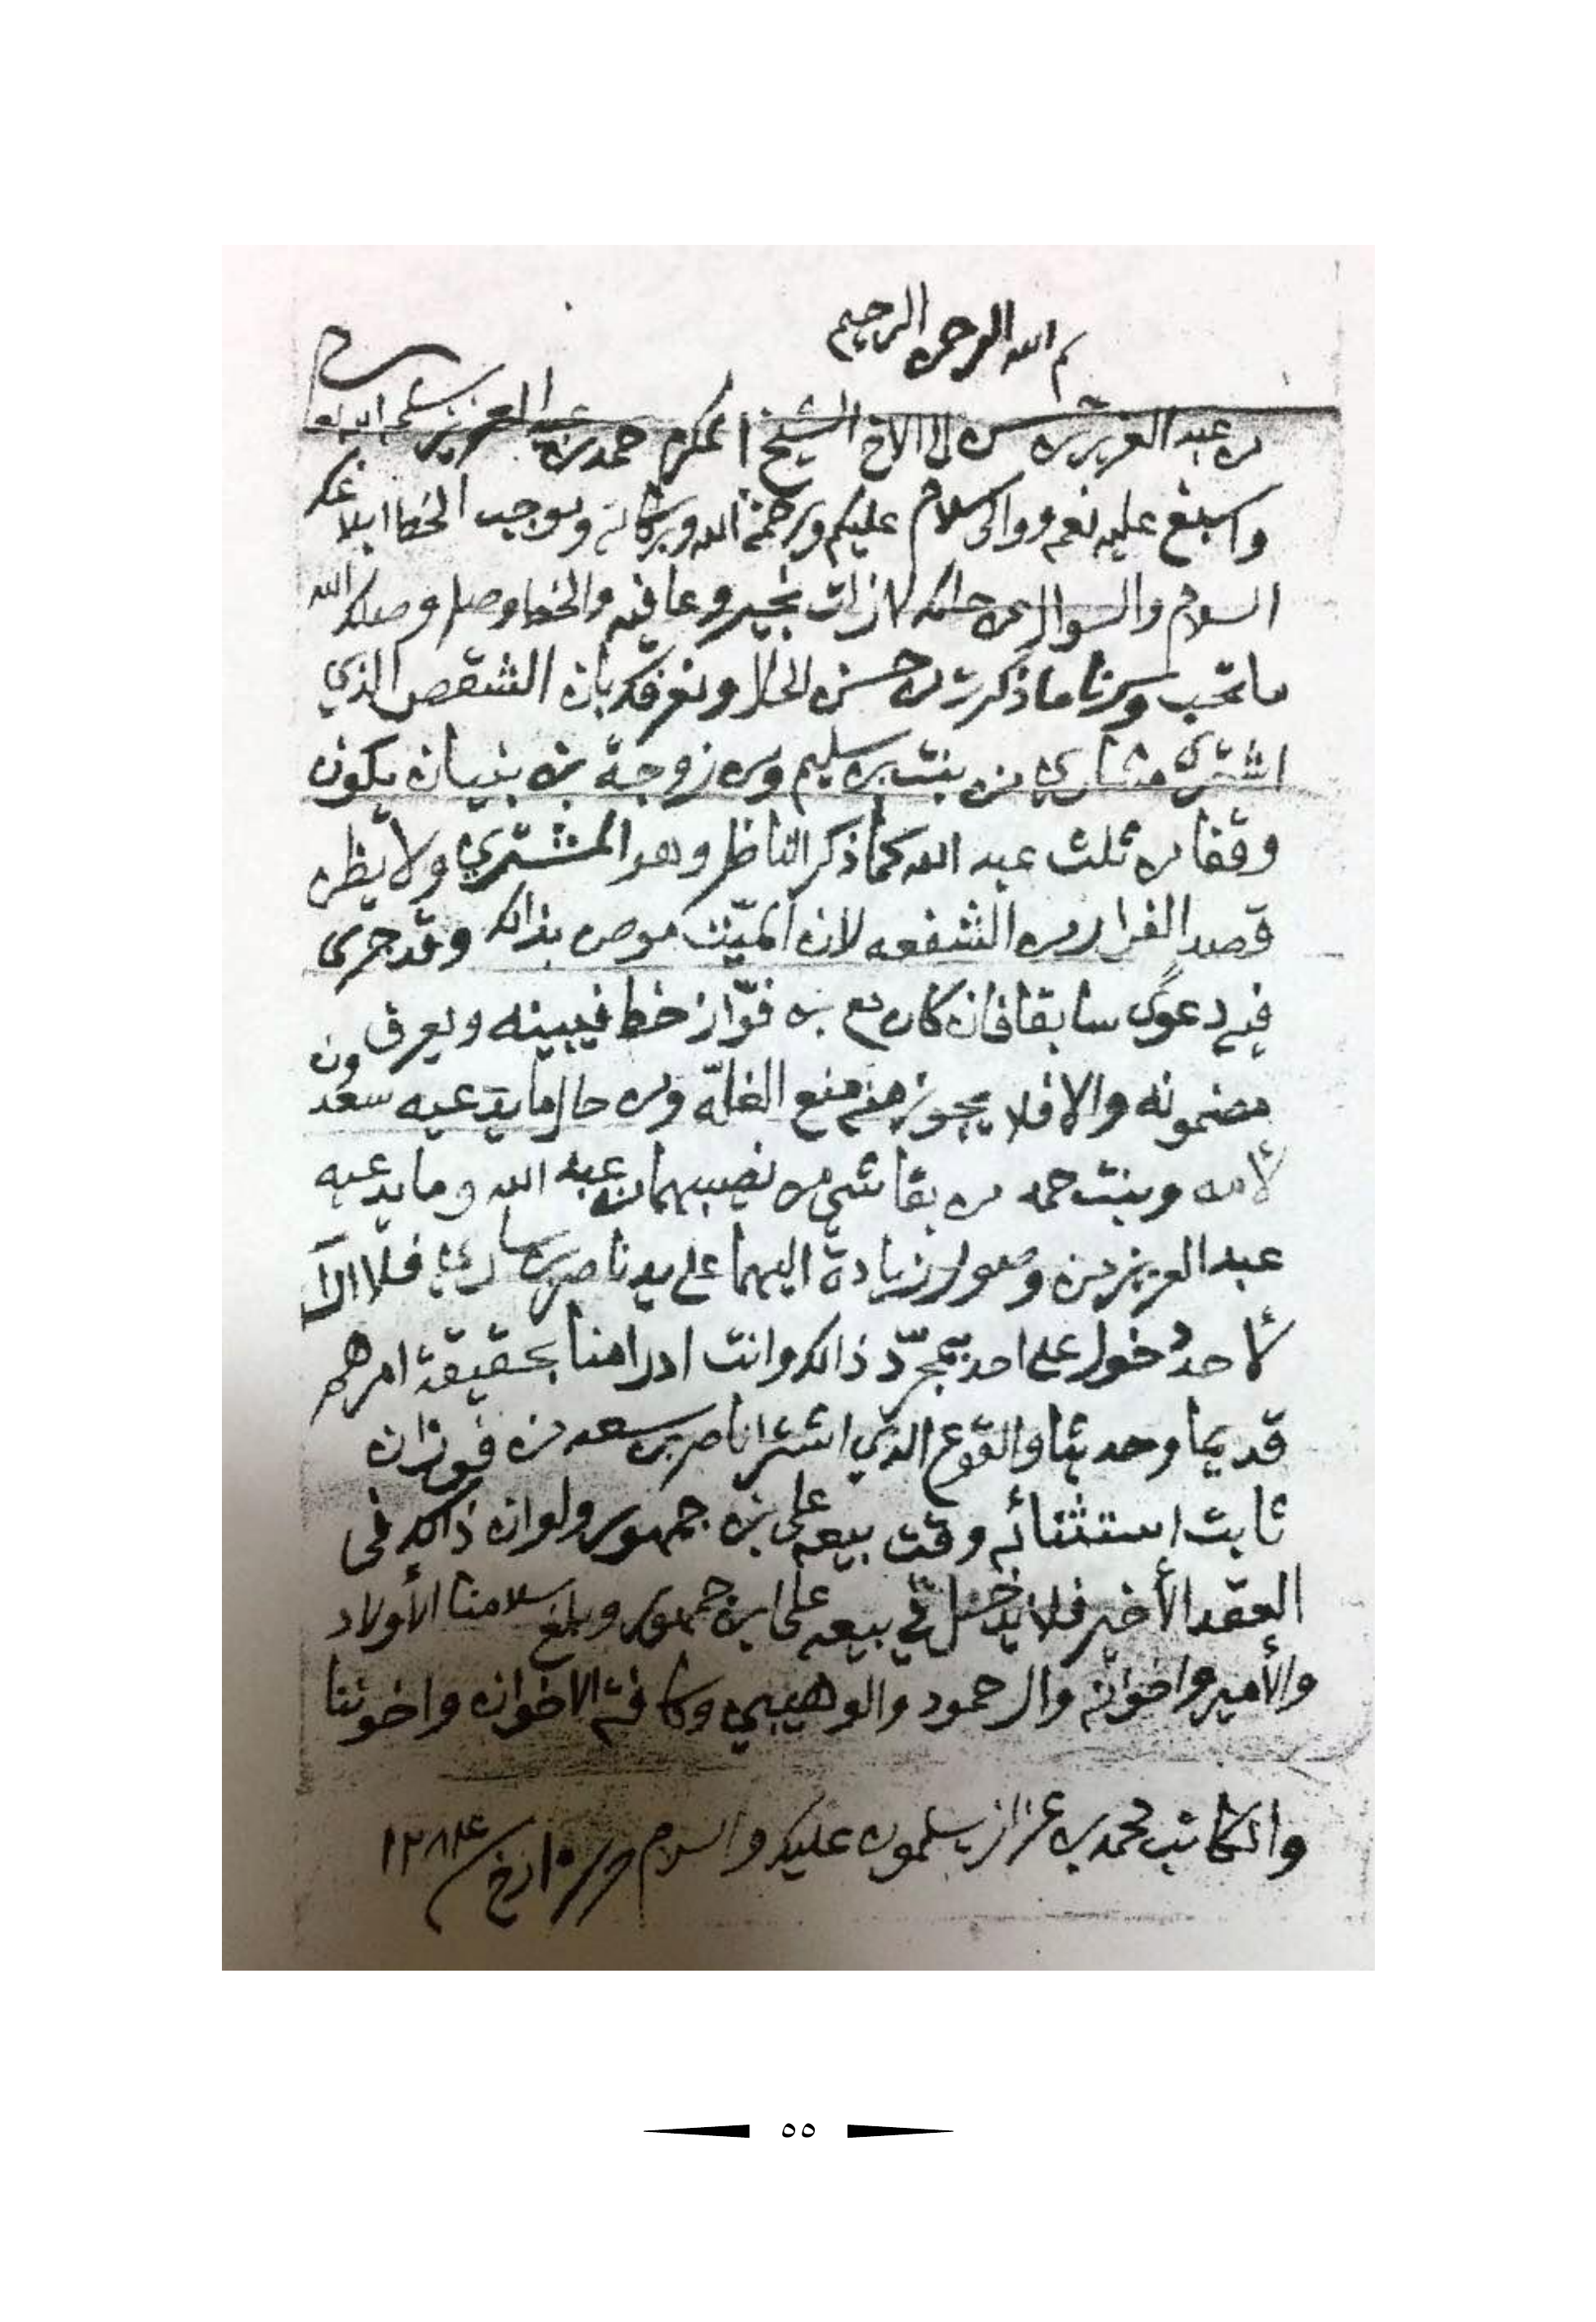 بسم الله الرحمن الرحيم
من عبد العزيز بن حسن الى الاخ الشيخ المكرم حمد بن عبد العزيز سلمه الله تعالى
واسبغ عليه نعمه ووالى سلام عليكم ورحمة الله وبركاته وموجب الخط ابلاغك
السلام والسوال عن حالك لازلت بخير وعافيه والخط وصل وصلك الله
ما تحب وسرنا ما ذكرت من حسن الحال ونعرفك بان الشقص الذي
اشترى مشاري من بنت بن سليم ومن زوجة بن بنيان يكون
وقفا من ثلث عبد الله كما ذكر الناظر وهو المشتري ولا يظن
قصد الفرار من الشفعه لان الميّت موص بذالك وقد جرى
فيه دعوى سابقا فان كان مع بن فوّاز خط فيبينه ويعرف
مضمونه والا فلا يجوز منه منع الغلّة ومن حال ما يدعيه سعدون
لأمه وبنت حمد من بقا شي من نصيبهما من عبد الله وما يدعيه
عبد العزيز من وصول زيادة اليهما على يد ناصر بن ساري فلا ارا
لأحد دخول على احد بمجرّد ذالك وانت ادرا منا بحقيقة امرهم
قديما وحديثا والقوع الذي اشترا ناصر بن سعد من فوزان
ثابت استثنائه وقت بيعه على بن جمهور ولو ان ذالك في
العقد الأخير فلا يدخل في بيعه على ابن جمهور وبلغ سلامنا الأولاد
والأمير واخوانه وال حمود والوهيبي وكافة الاخوان واخوتنا
والكاتب محمد بن عزاز يسلمون عليك والسلام حرر تاريخ ١٢٨٤
٥٥